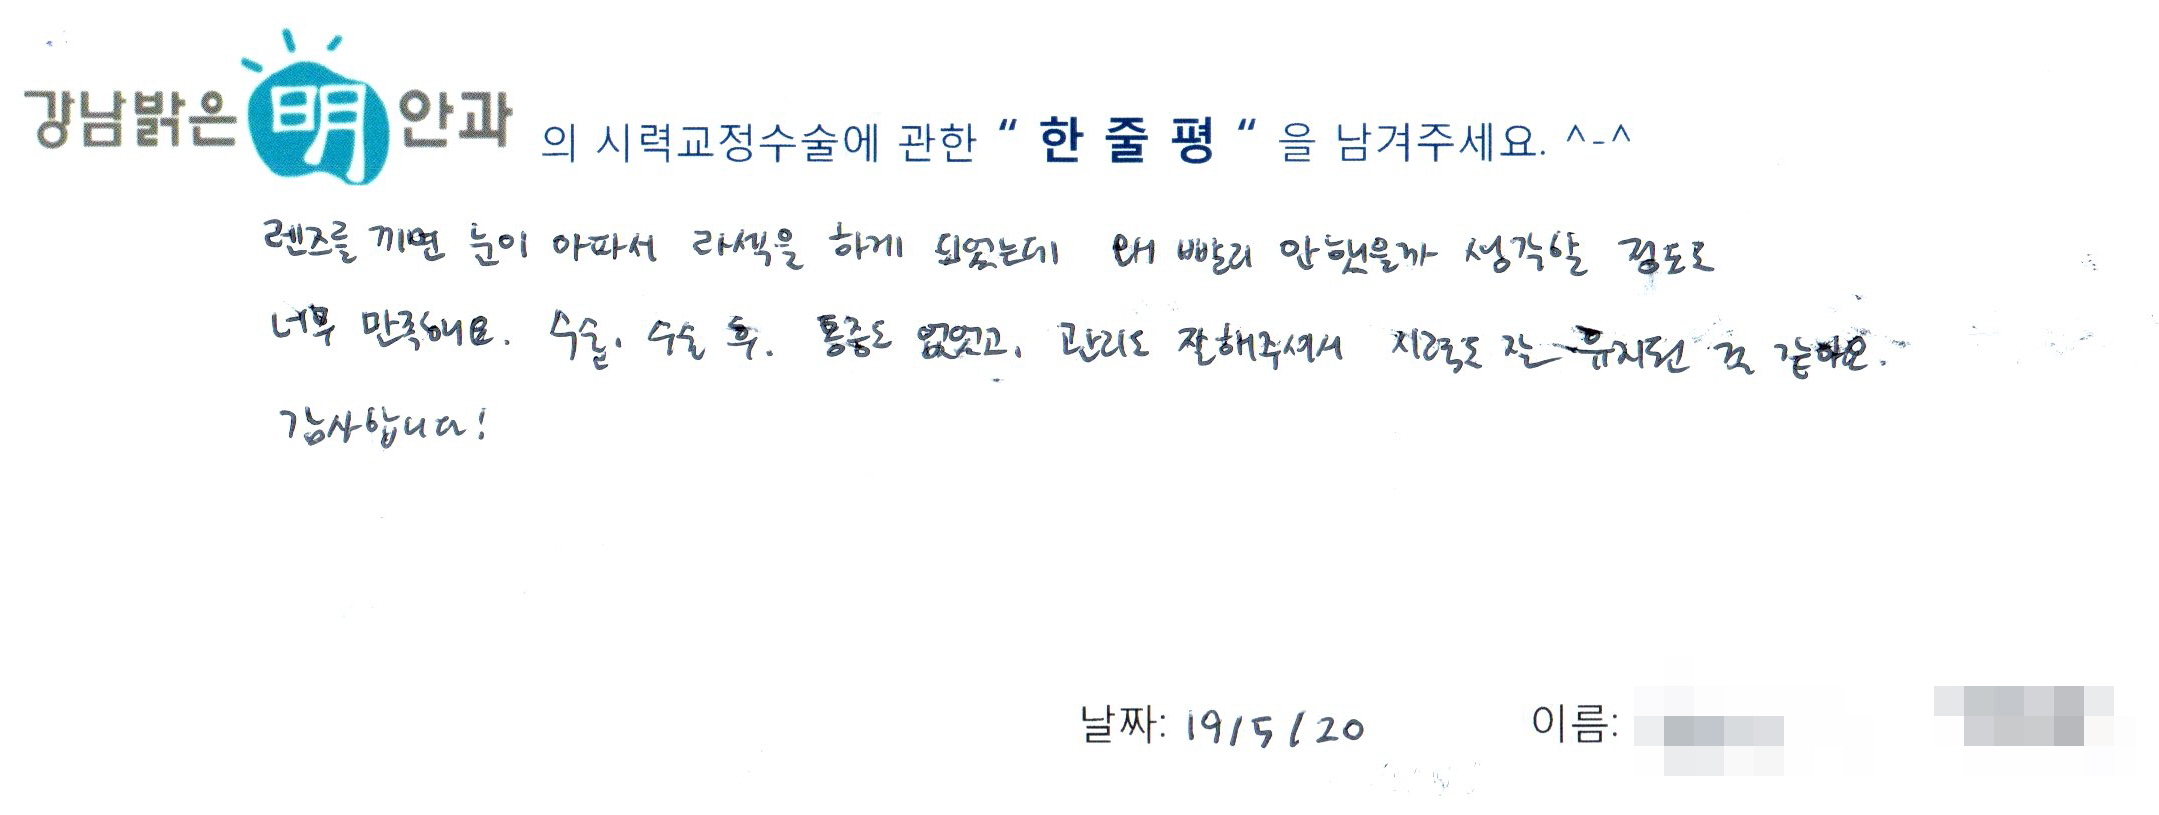 강남밝은 明 안과 의 시력교정수술에 관한 “ 한 줄 평 “ 을 남겨주세요. ^-^
렌즈를 끼면 눈이 아파서 라섹을 하게 되었는데 왜 빨리 안했을까 생각할 정도로
너무 만족해요. 수술, 수술 후. 통증도 없었고, 관리도 잘해주셔서 시력도 잘 유지된 것 같아요.
감사합니다!
날짜: 19/5/20 이름: